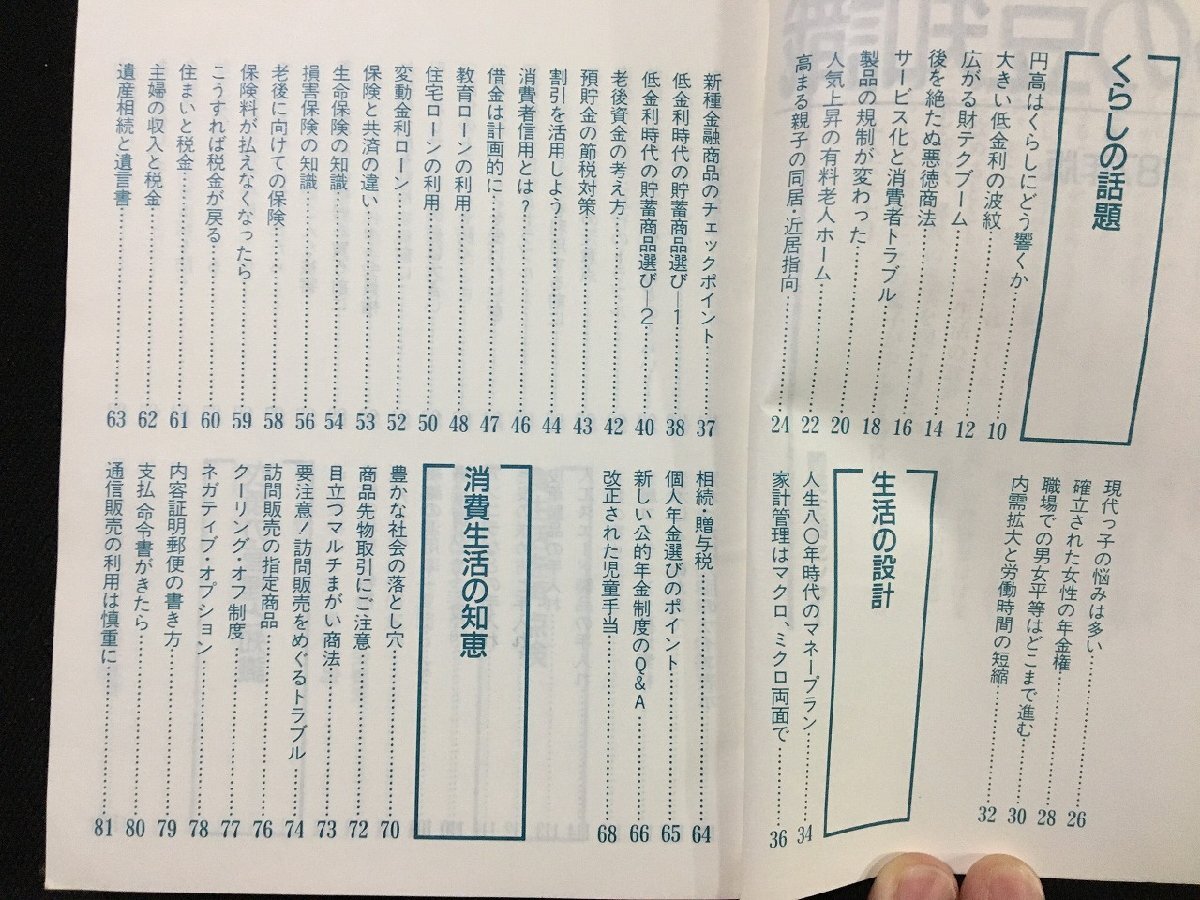 くらしの話題
円高はくらしにどう響くか……10
大きい低金利の波紋……12
広がる財テクブーム……14
後を絶たぬ悪徳商法……16
サービス化と消費者トラブル……18
製品の規制が変わった……20
人気上昇の有料老人ホーム……22
高まる親子の同居・近居指向……24
現代っ子の悩みは多い……26
確立された女性の年金権……28
職場での男女平等はどこまで進む……30
内需拡大と労働時間の短縮……32
生活の設計
人生八〇年時代のマネープラン……34
家計管理はマクロ、ミクロ両面で……36
新種金融商品のチェックポイント……37
低金利時代の貯蓄商品選び―1……38
低金利時代の貯蓄商品選び―2……40
老後資金の考え方……42
預貯金の節税対策……43
割引を活用しよう……44
消費者信用とは?……46
借金は計画的に……47
教育ローンの利用……48
住宅ローンの利用……50
変動金利ローン……52
保険と共済の違い……53
生命保険の知識……54
損害保険の知識……56
老後に向けての保険……58
保険料が払えなくなったら……59
こうすれば税金が戻る……60
住まいと税金……61
主婦の収入と税金……62
遺産相続と遺言書……63
相続・贈与税……64
個人年金選びのポイント……65
新しい公的年金制度のQ&A……66
改正された児童手当……68
消費生活の知恵
豊かな社会の落とし穴……70
商品先物取引にご注意……72
目立つマルチまがい商法……73
要注意!訪問販売をめぐるトラブル……74
訪問販売の指定商品……76
クーリング・オフ制度……77
ネガティブ・オプション……78
内容証明郵便の書き方……79
支払命令書がきたら……80
通信販売の利用は慎重に……81